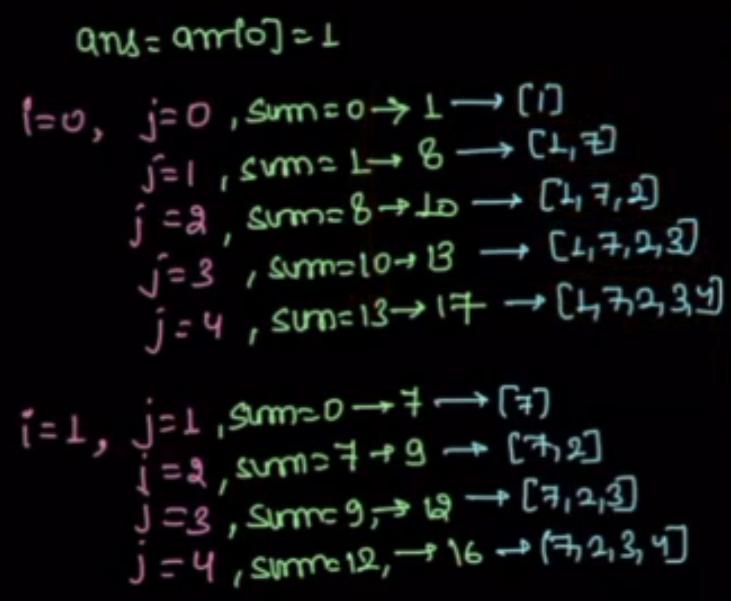 ans = arr[0] = 1
i=0, j=0, sum=0→1 → [1]
j=1, sum=1→8 → [1,7]
j=2, sum=8→10 → [1,7,2]
j=3, sum=10→13 → [1,7,2,3]
j=4, sum=13→17 → [1,7,2,3,4]
i=1, j=1, sum=0→7 → [7]
j=2, sum=7→9 → [7,2]
j=3, sum=9,→12 → [7,2,3]
j=4, sum=12,→16 → [7,2,3,4]